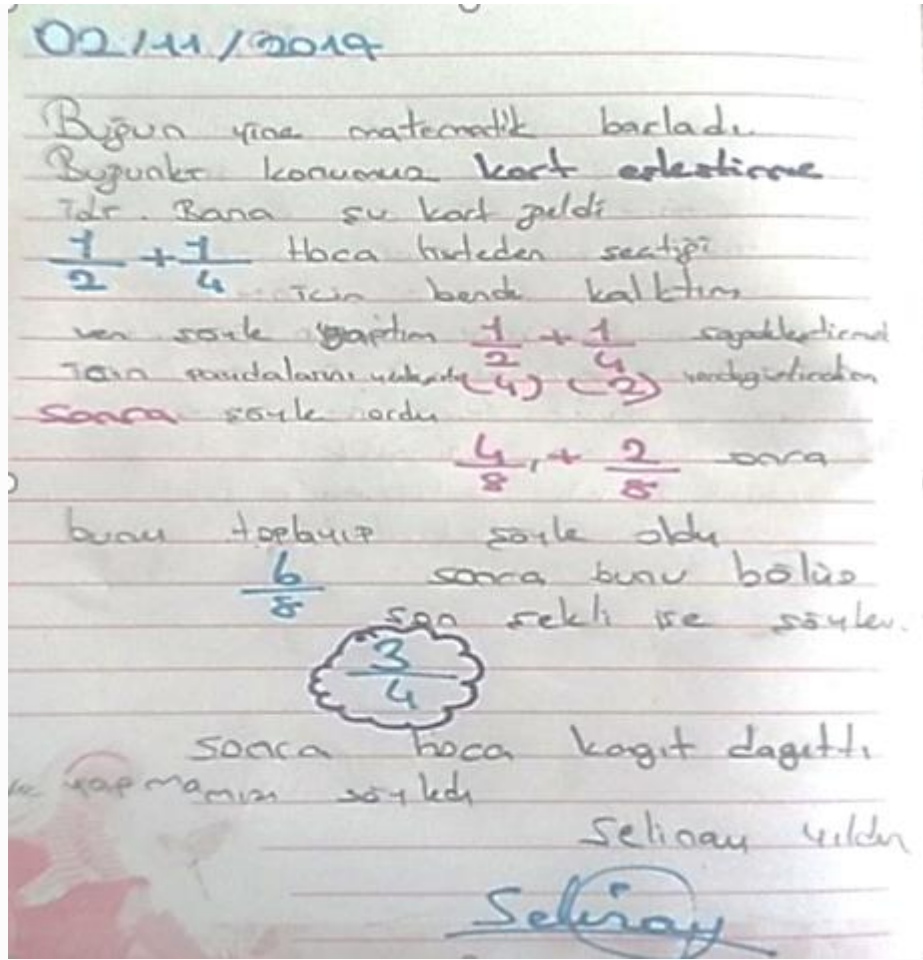 02/11/2019
Bugün yine matematik başladı.
Bugünkü konumuz kart eşleştirme
idi. Bana şu kart geldi
1/2 + 1/4 Hoca listeden seçtiği
için bende kalktım
ven söyle yaptım 1/2 + 1/4
için paydalarını (4) (2)
sonra söyle ordu
4/8 + 2/8 sonra
bunu toplayıp söyle oldu
6/8 sonra bunu bölüp
son şekli ise söyle
3/4
sonra hoca kagıt dagıttı
ve yapmamızı söyledi
Selinay Yıldız
Selinay